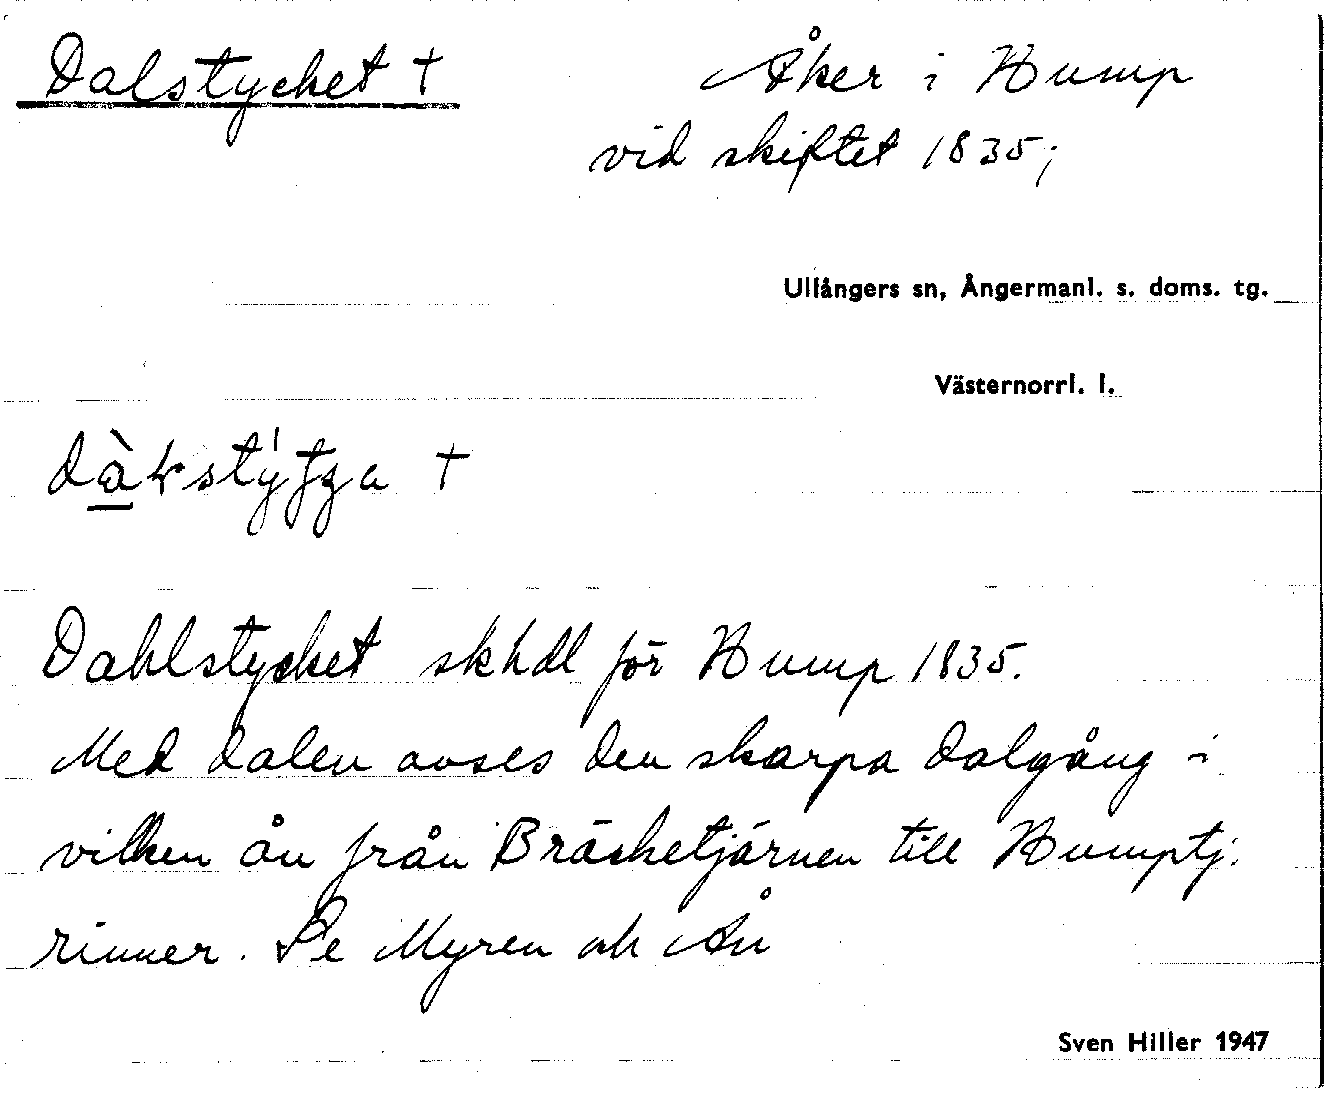 Dalstycket †
Åker i Hump
vid skiftet 1835;
Ullångers sn, Ångermanl. s. doms. tg.
Västernorrl. l.
†
Dahlstycket skhdl för Hump 1835.
Med dalen avses den skarpa dalgång i
vilken ån från Bräsketjärnen till Humptj.
rinner. Se Myren och Ån
Sven Hiller 1947